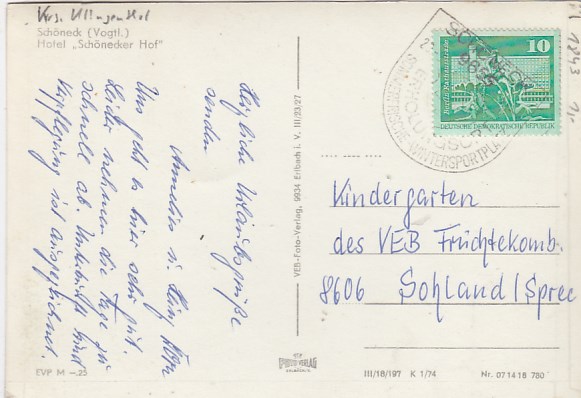 Krs. Klingenthal
Schöneck (Vogtl.)
Hotel „Schönecker Hof"
Herzliche Urlaubsgrüße
senden
Uns geht es hier sehr gut.
Leider nehmen die Tage zu
schnell ab. Unterkunft und
Verpflegung ist ausgezeichnet.
EVP M –.25
VEB-Foto-Verlag, 9934 Erlbach i. V. III/23/27
SCHÖNECK
9655
WINTERSPORTPLA
10
Berlin Rathausstraße
DEUTSCHE DEMOKRATISCHE REPUBLIK
1843
Kindergarten
des VEB Früchtekomb.
8606 Sohland/Spree
III/18/197 K 1/74
Nr. 071418 780